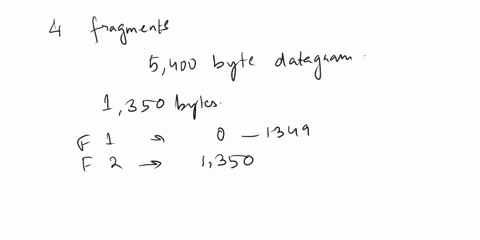 4 fragments
5,400 byte datagram.
1,350 bytes.
F 1 → 0 — 1349
F 2 → 1,350